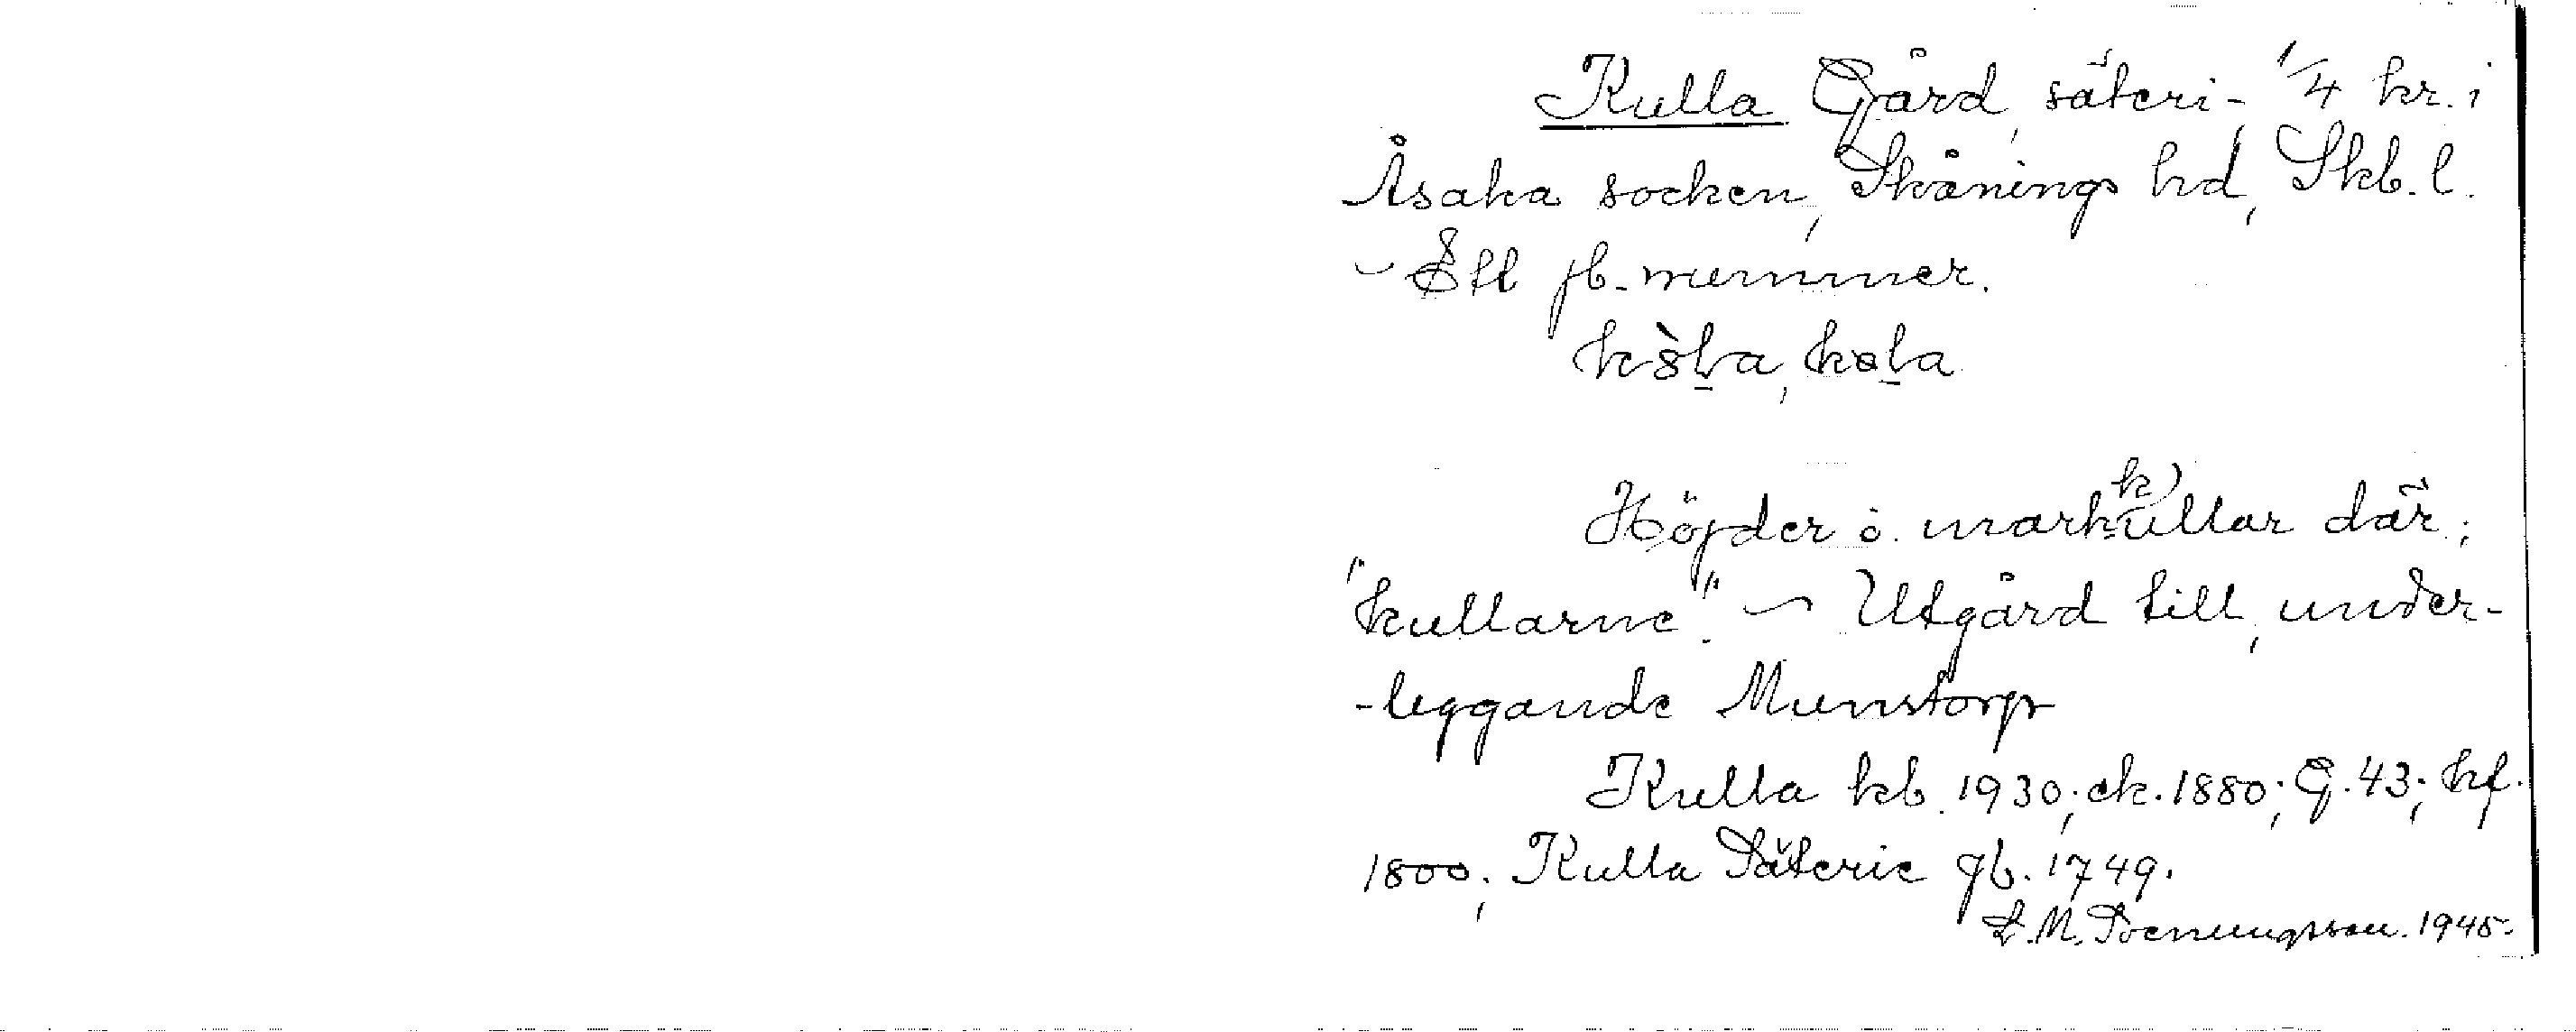 Kulla Gård, säteri-, 1/4 hr. i
Åsaka socken, Skånings hd, Skb. l.
– Ett jb.-nummer.
Höjder o. markullar där;
"kullarne". – Utgård till, under-
-leggande Munstorp
Kulla kb. 1930; ek. 1880; G. 43; hf.
1800; Kulla Säterie gb. 1749.
1945.